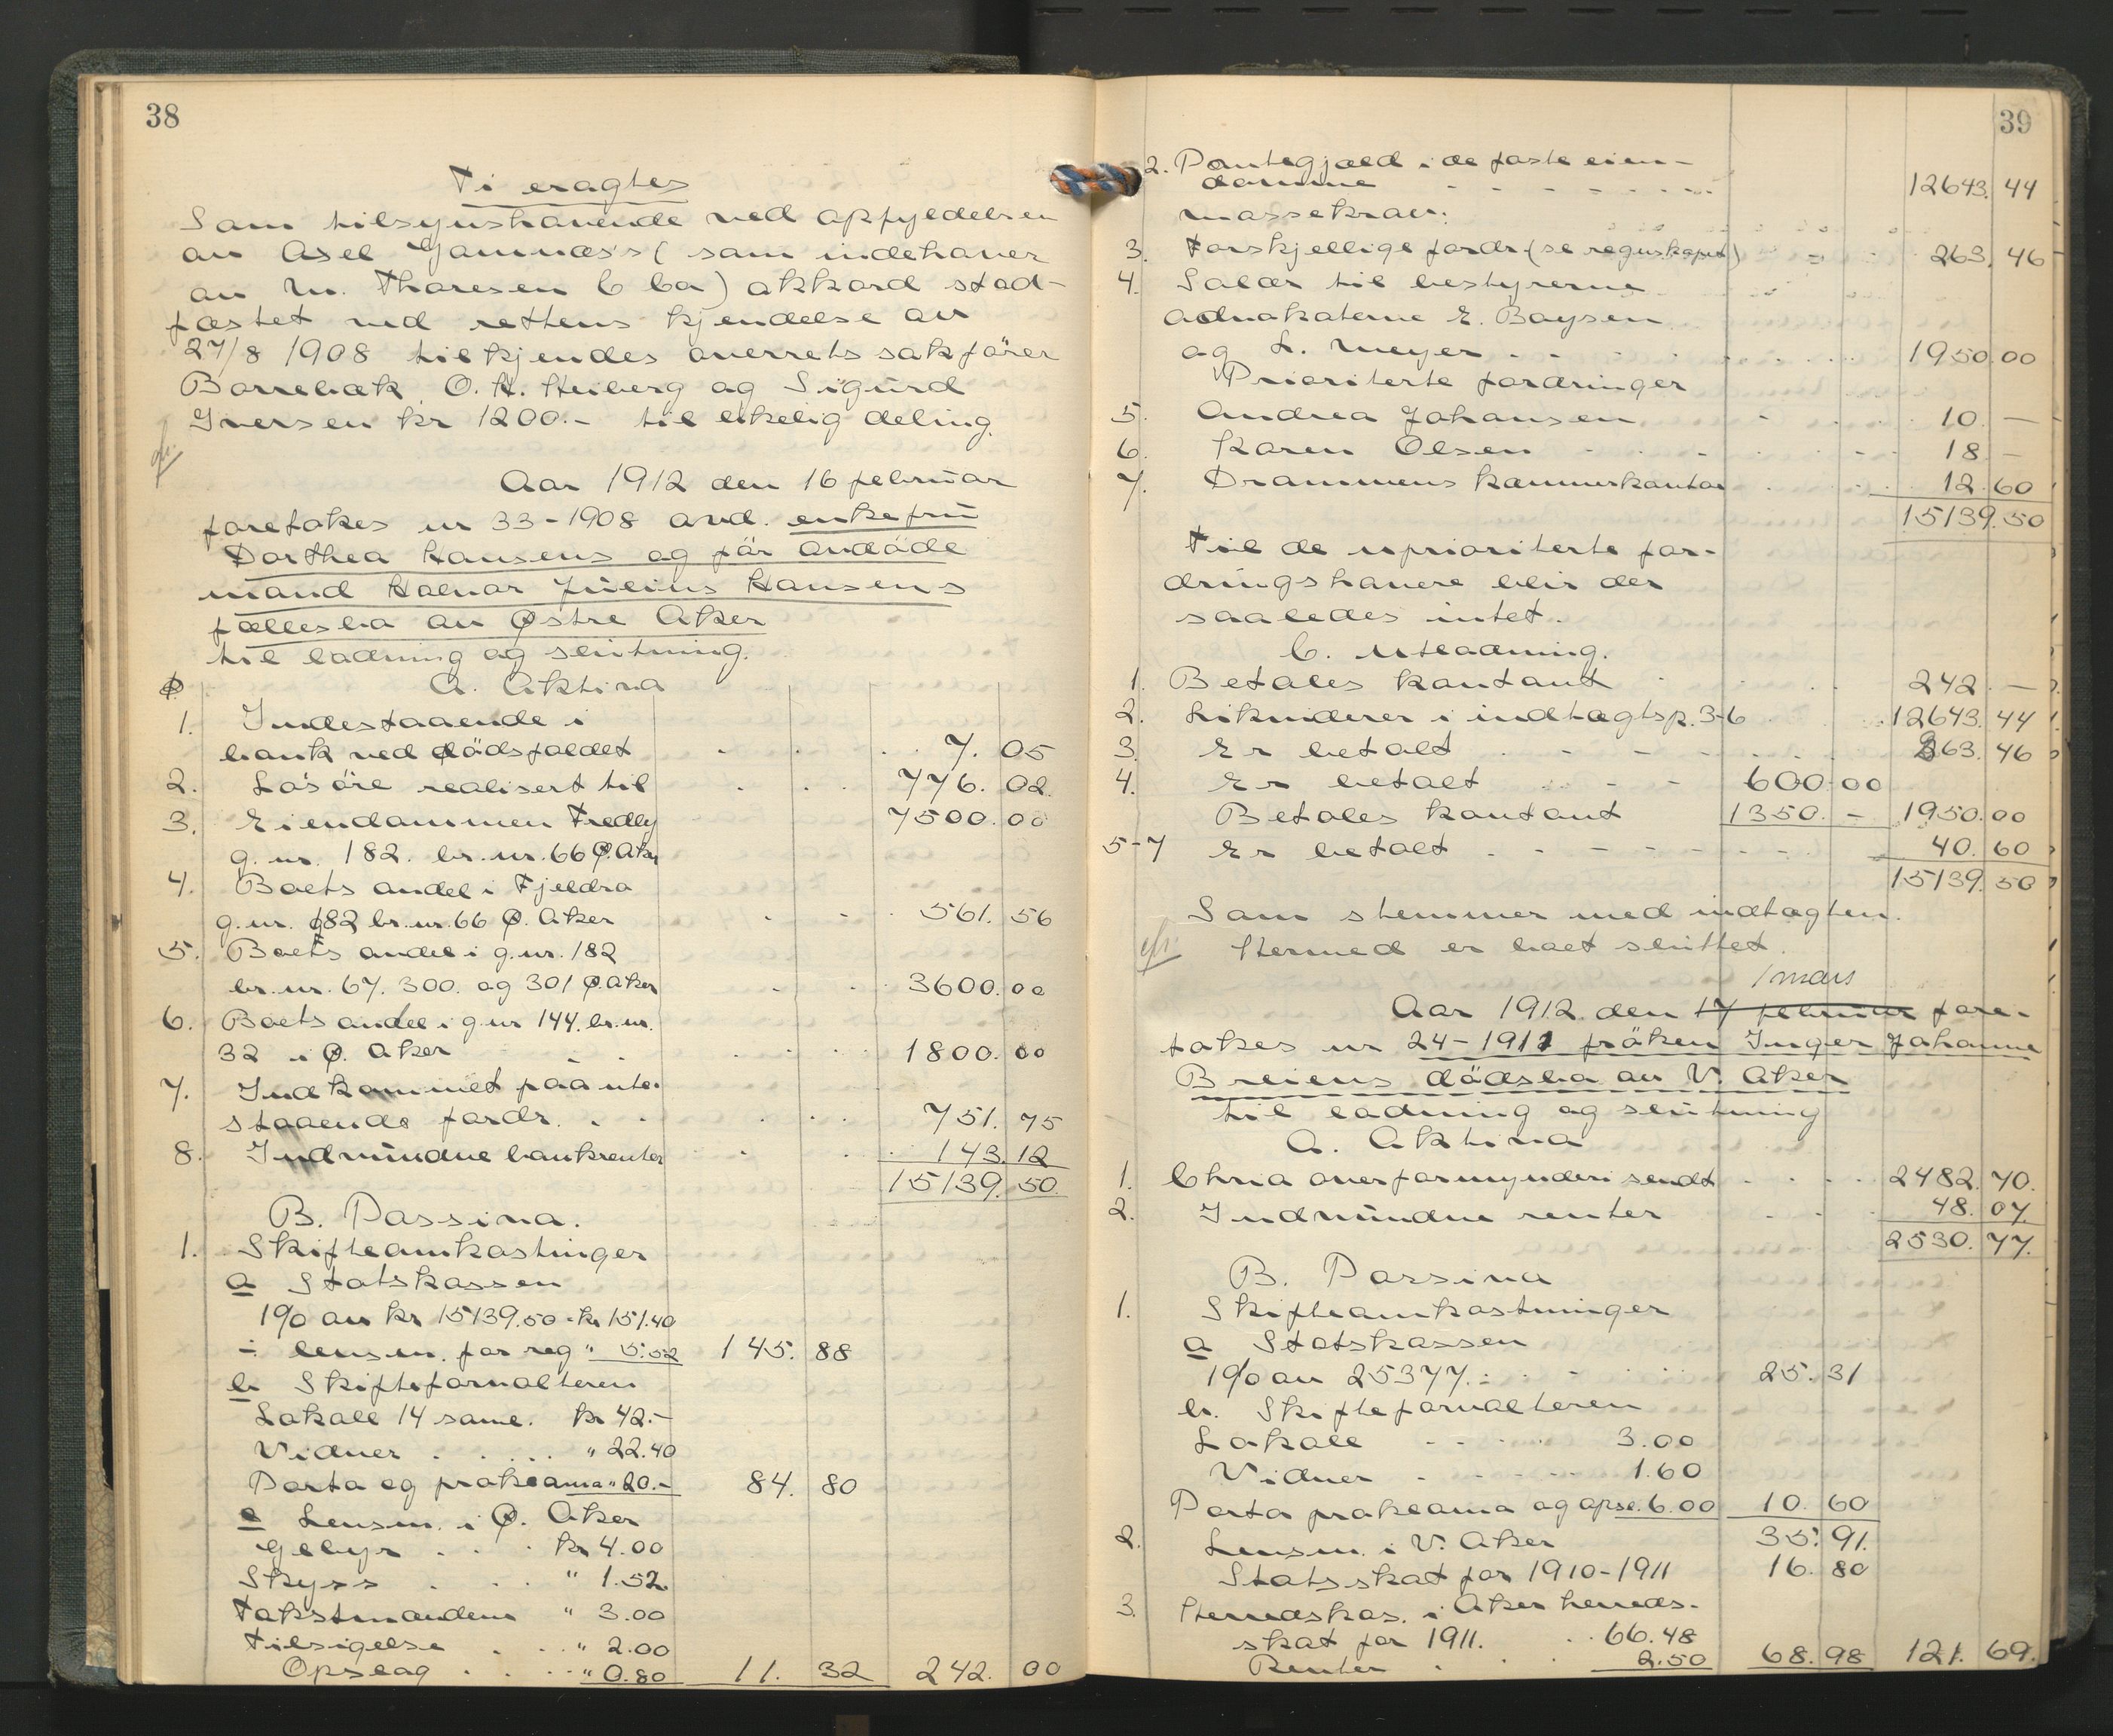 38
Ti eragtes
Som tilsynshavende ved opfyldelsen
av Axel Gamnæs's (som indehaver
av M. Thoresen & Co) akkord stad-
fæstet ved rettens kjendelse av
27/8 1908 tilkjendes overretssakfører
Borrebæk, O. H. Heiberg og Sigurd
Iversen kr 1200.- til likelig deling.
Aar 1912 den 16 februar
foretokes nr 33-1908 avd. enkefru
Dorthea Hansens og før avdøde
mand Halvor Julius Hansens
fællesbo av Østre Aker
til lodning og slutning.
A. Aktiva
1. Indestaaende i
bank ved dödsfaldet 7. 05
2. Lösöre realisert til 776. 02
3. Eiendommen Fredly 7500. 00
g. nr. 182. br. nr. 66 Ø. Aker
4. Boets andel i Fjeldro
g. nr. 182 br. nr. 66 Ø. Aker 561. 56
5. Boets andel i g. nr. 182
br. nr. 67. 300. og 301 Ø. Aker 3600. 00
6. Boets andel i g nr 144. br. nr.
32 i Ø. Aker 1800. 00
7. Indkommet paa ute-
staaende fordr. 751. 75
8. Indvundne bankrenter 143. 12
15139. 50.
B. Passiva.
1. Skifteomkostninger
a Statskassen
1% av kr 15139.50 - kr 151.40
÷ lensm. for reg " 5.52 145. 88
b Skifteforvalteren
Lokale 14 saml. kr 42.-
Vidner " 22.40
Porto og proklama " 20.- 84. 80
c Lensm. i Ø. Aker
Gebyr kr 4.00
Skyss " 1.52
Takstmændene " 3.00
Tilsigelse " 2.00
Opslag " 0.80 11. 32 242. 00
39
2. Pantegjæld i de faste eien-
domme 12643. 44
Massekrav.
3. Forskjellige fordr (se regnskapet) 263. 46
4. Salær til bestyrerne
advokaterne E. Boysen
og L. Meyer 1950. 00
Prioriterte fordringer
5. Andrea Johansen 10. —
6. Karen Olsen 18 —
7. Drammens kæmnerkontor 12. 60
15139. 50
Til de uprioriterte for-
dringshavere blir der
saaledes intet.
C. Utlodning.
1. Betales kontant 242 —
2. Likviderer i indtægtsp. 3-6 12643. 44
3. Er betalt 263. 46
4. Er betalt 600. 00
Betales kontant 1350. - 1950. 00
5-7 Er betalt 40. 60
15139. 50
Som stemmer med indtægten.
Hermed er boet sluttet.
1 mars
Aar 1912 den 17 februar fore-
tokes nr 24-1911 fröken Inger Johanne
Breiens dödsbo av V. Aker
til lodning og slutning
A. Aktiva
1. Chria overformynderi sendt 2482. 70.
2. Indvundne renter 48. 07.
2530. 77.
B. Passiva
1. Skifteomkostninger
a Statskassen
1% av 2537 7. 25. 31
b. Skifteforvalteren
Lokale 3.00
Vidner 1.60
Porto proklama og opsl. 6.00 10. 60
35. 91.
2. Lensm. i V. Aker
Statsskat for 1910-1911 16. 80
3. Herredskas. i Aker herreds-
skat for 1911. 66.48
Renter 2.50 68. 98 121. 69.